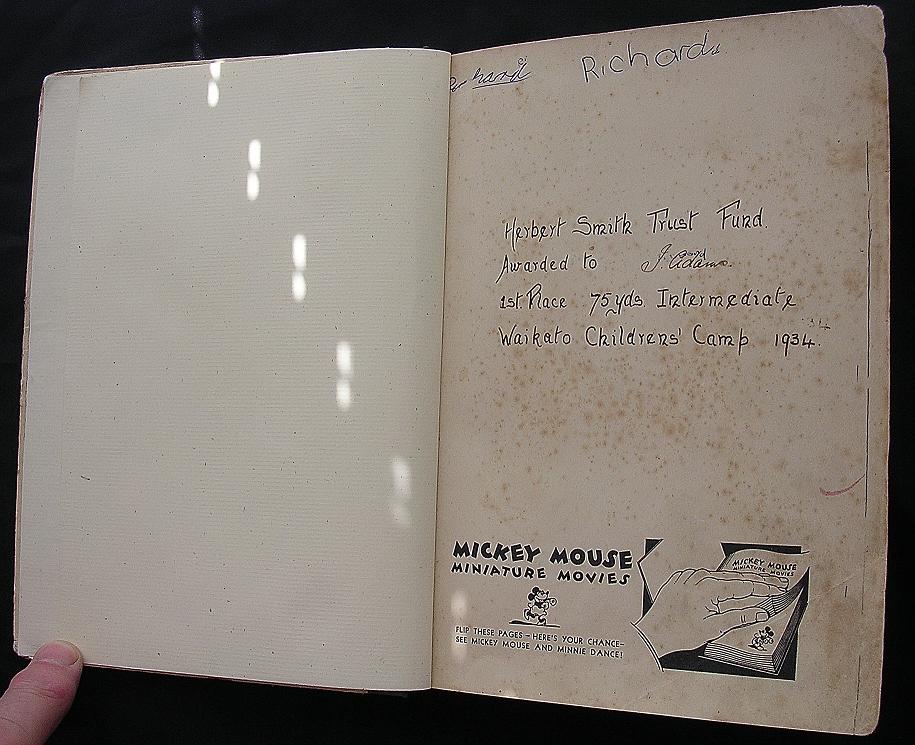 Richard
Richard
Herbert Smith Trust Fund.
Awarded to J. Adams.
1st. Place 75 yds. Intermediate
34
Waikato Childrens' Camp 1934.
MICKEY MOUSE
MINIATURE MOVIES
MICKEY MOUSE
MINIATURE MOVIES
FLIP THESE PAGES – HERE'S YOUR CHANCE–
SEE MICKEY MOUSE AND MINNIE DANCE!